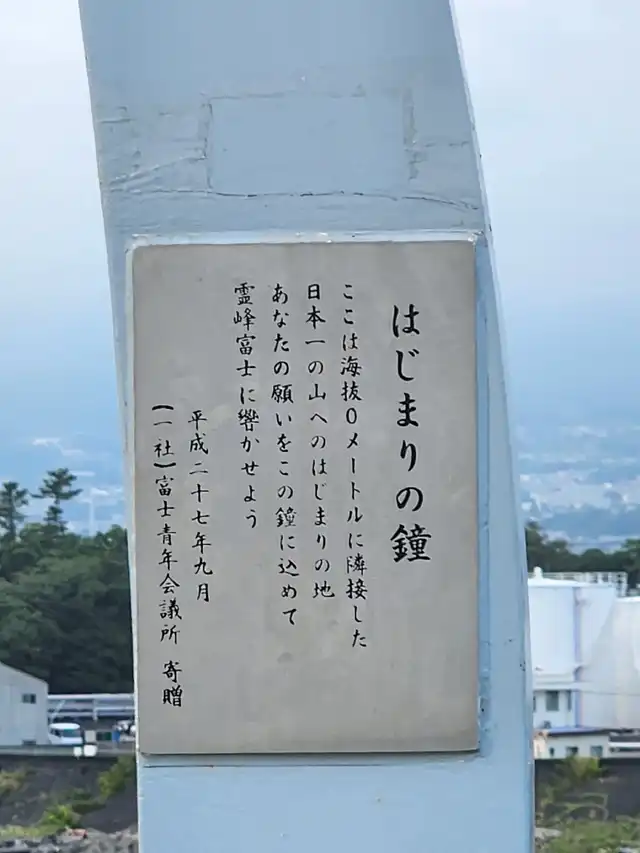 はじまりの鐘
ここは海抜0メートルに隣接した
日本一の山へのはじまりの地
あなたの願いをこの鐘に込めて
霊峰富士に響かせよう
平成二十七年九月
(一社)富士青年会議所 寄贈